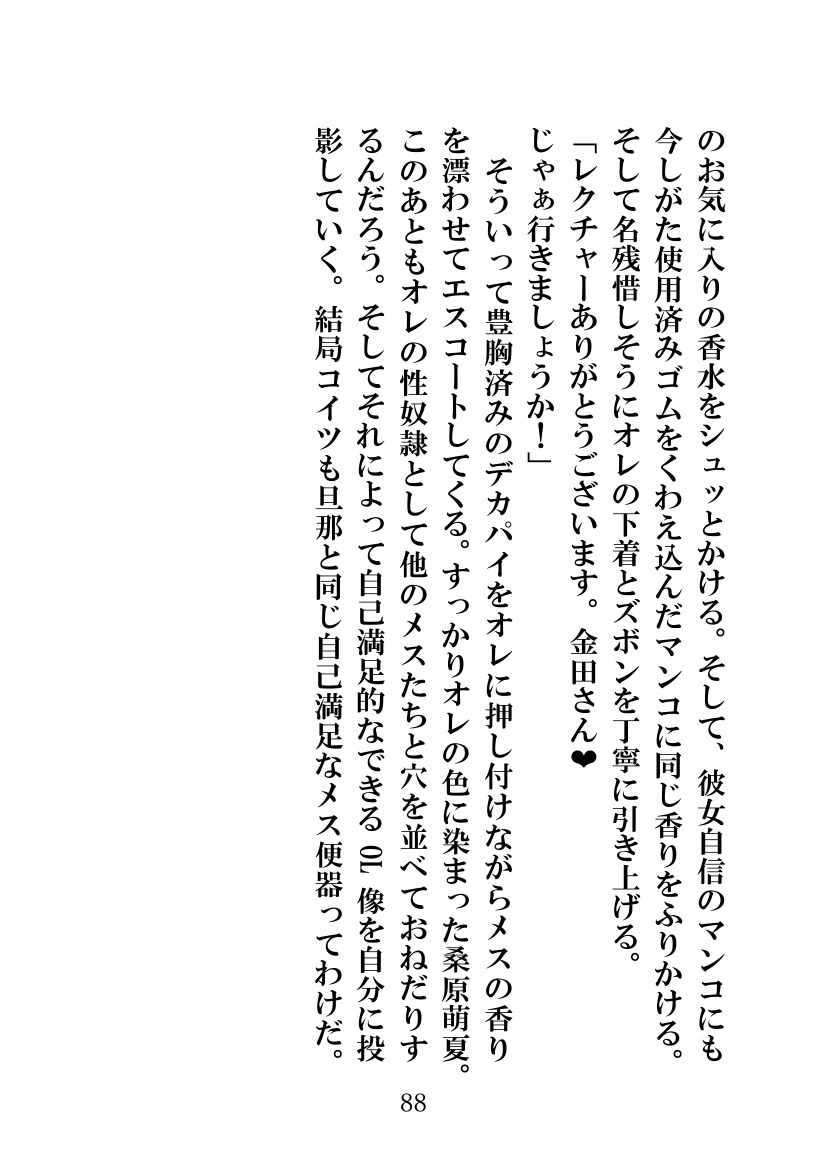 のお気に入りの香水をシュッとかける。そして、彼女自信のマンコにも
今しがた使用済みゴムをくわえ込んだマンコに同じ香りをふりかける。
そして名残惜しそうにオレの下着とズボンを丁寧に引き上げる。
「レクチャーありがとうございます。金田さん❤
じゃぁ行きましょうか！」
　そういって豊胸済みのデカパイをオレに押し付けながらメスの香り
を漂わせてエスコートしてくる。すっかりオレの色に染まった桑原萌夏。
このあともオレの性奴隷として他のメスたちと穴を並べておねだりす
るんだろう。そしてそれによって自己満足的なできるOL像を自分に投
影していく。結局コイツも旦那と同じ自己満足なメス便器ってわけだ。
88